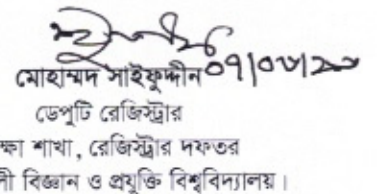 মোহাম্মদ সাইফুদ্দীন
ডেপুটি রেজিস্ট্রার
ক্ষা শাখা, রেজিস্ট্রার দফতর
ী বিজ্ঞান ও প্রযুক্তি বিশ্ববিদ্যালয়।